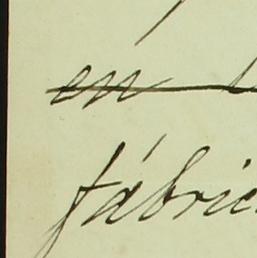 en
fábric